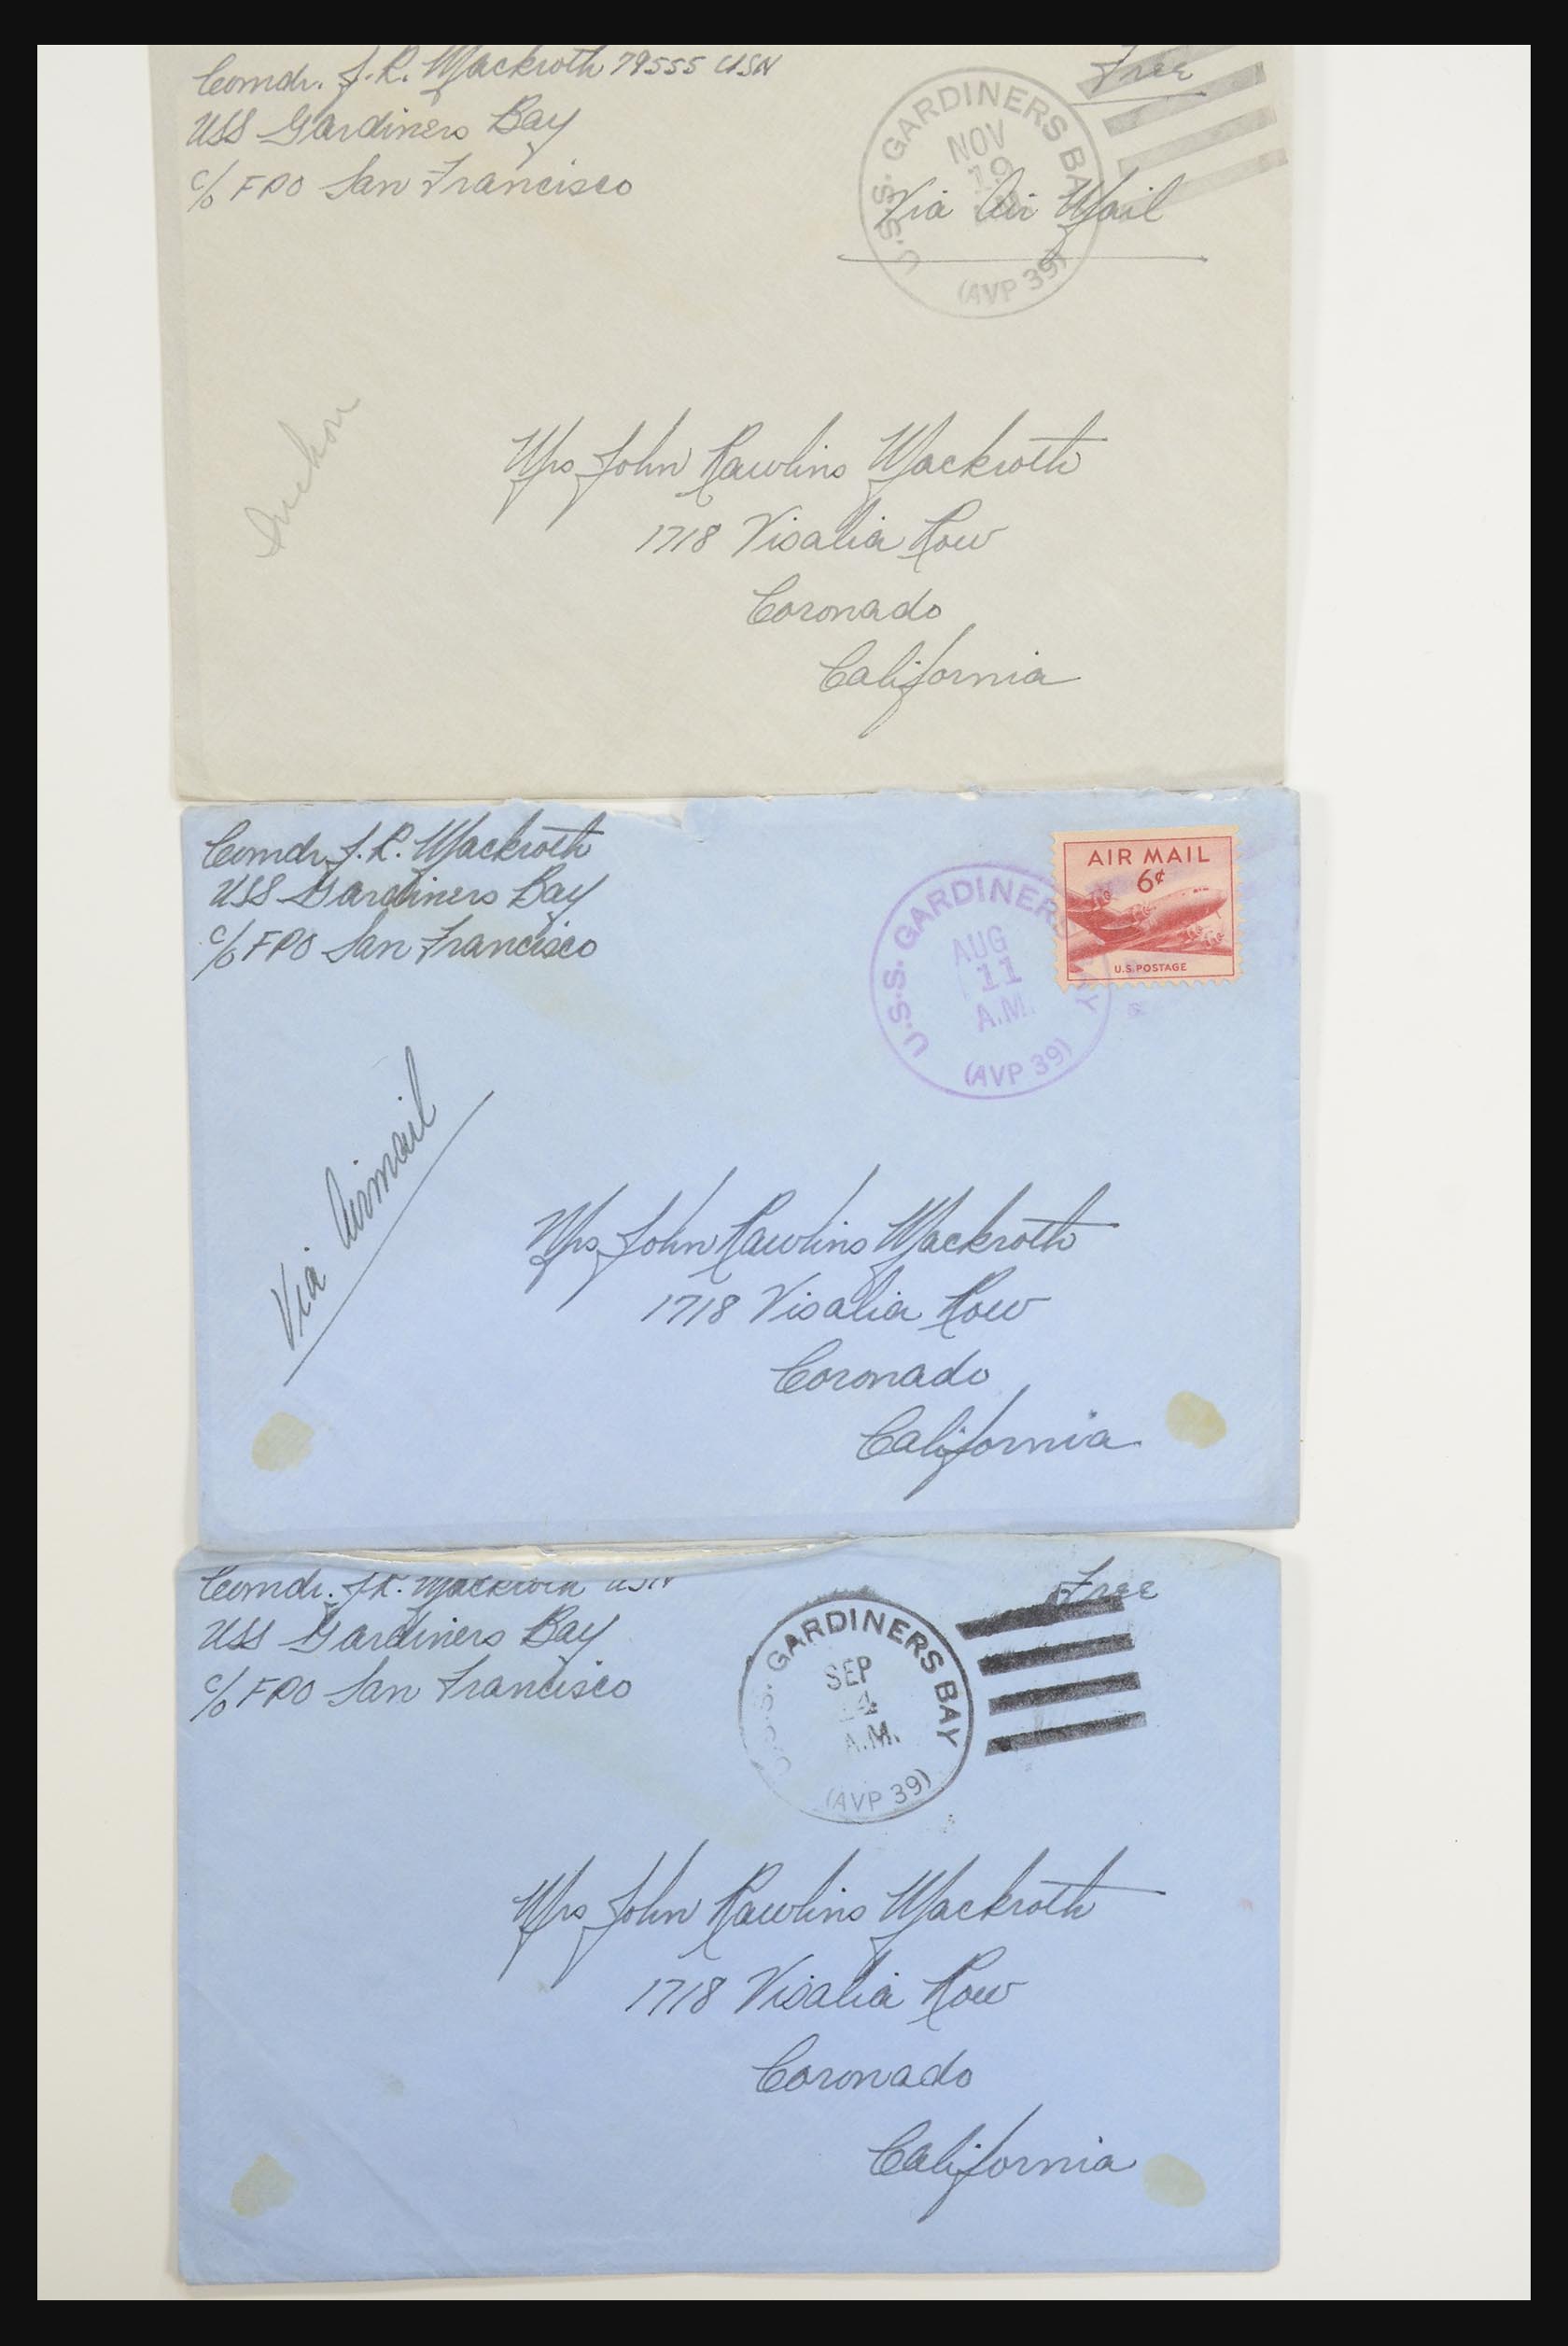 Comdr. J. R. Mackroth 79555 USN
USS Gardiners Bay
c/o FPO San Francisco
Free
U.S.S. GARDINERS BAY
NOV
19
(AVP 39)
Via Air Mail
Inchon
Mrs John Rawlins Mackroth
1718 Visalia Row
Coronado
California
Comdr J. R. Mackroth
USS Gardiners Bay
c/o FPO San Francisco
AIR MAIL
6¢
U.S. POSTAGE
U.S.S. GARDINERS BAY
AUG
11
A.M.
(AVP 39)
Via Airmail
Mrs John Rawlins Mackroth
1718 Visalia Row
Coronado
California
Comdr. J.R. Mackroth USN
USS Gardiners Bay
c/o FPO San Francisco
Free
U.S.S. GARDINERS BAY
SEP
A.M.
(AVP 39)
Mrs John Rawlins Mackroth
1718 Visalia Row
Coronado
California